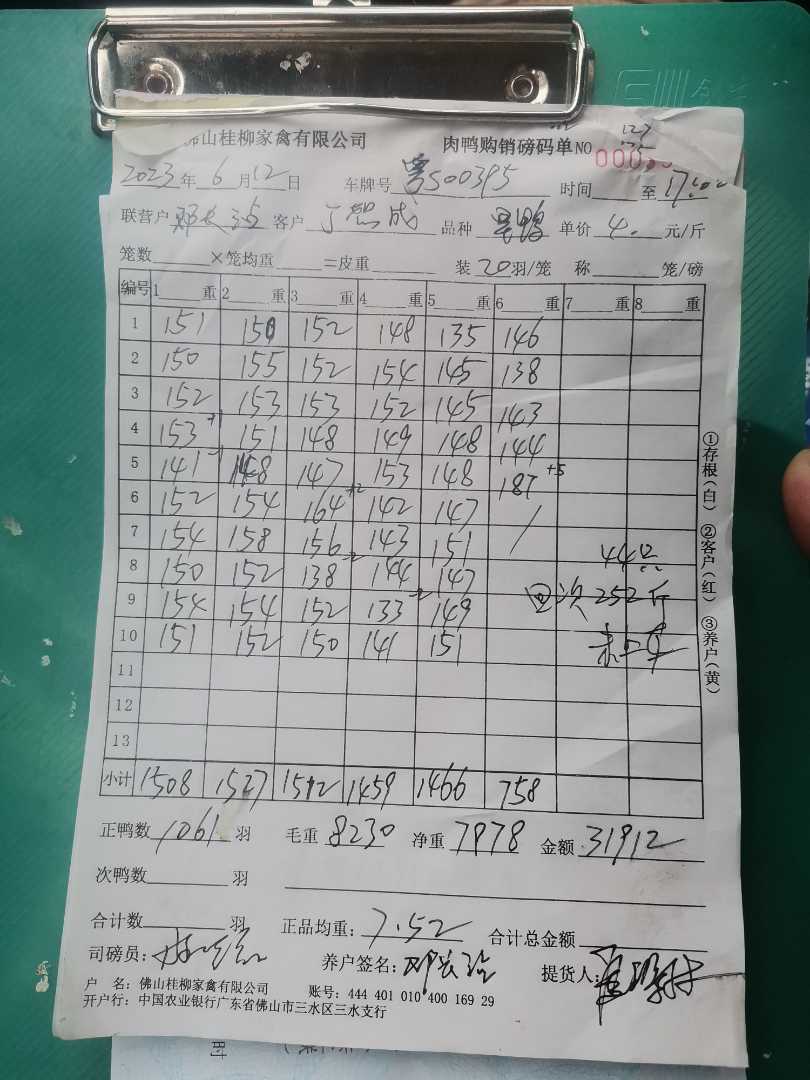 佛山桂柳家禽有限公司 肉鸭购销磅码单NO
2023年6月12日 车牌号 粤S00395 时间 至17:00
联营户 邓长治 客户 品种 单价 4. 元/斤
笼数 ×笼均重 =皮重 装20羽/笼 称 笼/磅
编号 1 重 2 重 3 重 4 重 5 重 6 重 7 重 8 重
1 151 150 152 148 135 146
2 150 155 152 154 145 138
3 152 153 153 152 145 143
4 153+1 151 148 149 148 144
5 141-1 148 147 153 148 187+5
6 152 154 164+2 142 147 /
7 154 158 156 143 151 44只
8 150 152 138-2 144 147
9 154 154 152 133-2 149 回次252斤
10 151 152 150 141 151 未上车
11
12
13
小计 1508 1527 1512 1459 1466 758
正鸭数 1061 羽 毛重 8230 净重 7978 金额 31912
次鸭数 羽
合计数 羽 正品均重: 7.52 合计总金额
司磅员: 养户签名: 邓长治 提货人:
户 名: 佛山桂柳家禽有限公司 账号: 444 401 010 400 169 29
开户行: 中国农业银行广东省佛山市三水区三水支行
①存根(白) ②客户(红) ③养户(黄)
时